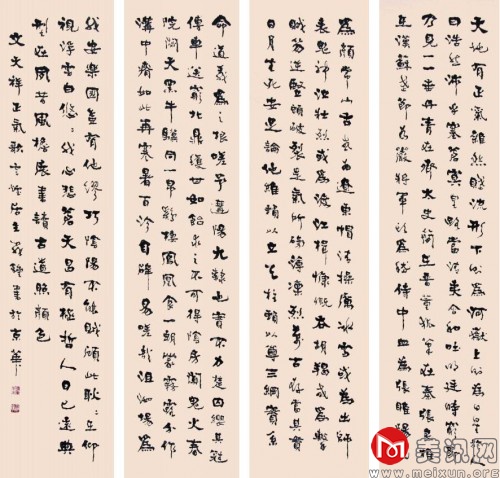 天地有正氣雜然賦流形下則為河嶽上則為日星於人
曰浩然沛乎塞蒼冥皇路當清夷含和吐明庭時窮節
乃見一一垂丹青在齊太史簡在晉董狐筆在秦張良椎
在漢蘇武節為嚴將軍頭為嵇侍中血為張睢陽齒
為顏常山舌或為遼東帽清操厲冰雪或為出師
表鬼神泣壯烈或為渡江楫慷慨吞胡羯或為擊
賊笏逆豎頭破裂是氣所磅礴凜烈萬古存當其貫
日月生死安足論地維賴以立天柱賴以尊三綱實系
命道義為之根嗟予遘陽九隸也實不力楚囚纓其冠
傳車送窮北鼎鑊甘如飴求之不可得陰房闃鬼火春
院閟天黑牛驥同一皂雞棲鳳凰食一朝蒙霧露分作
溝中瘠如此再寒暑百沴自辟易嗟哉沮洳場為
我安樂國豈有他繆巧陰陽不能賊顧此耿々在仰
視浮雲白悠々我心悲蒼天曷有極哲人日已遠典
刑在夙昔風檐展書讀古道照顏色
文天祥正氣歌 居士 書於京華
美讯网
www.meixun.org